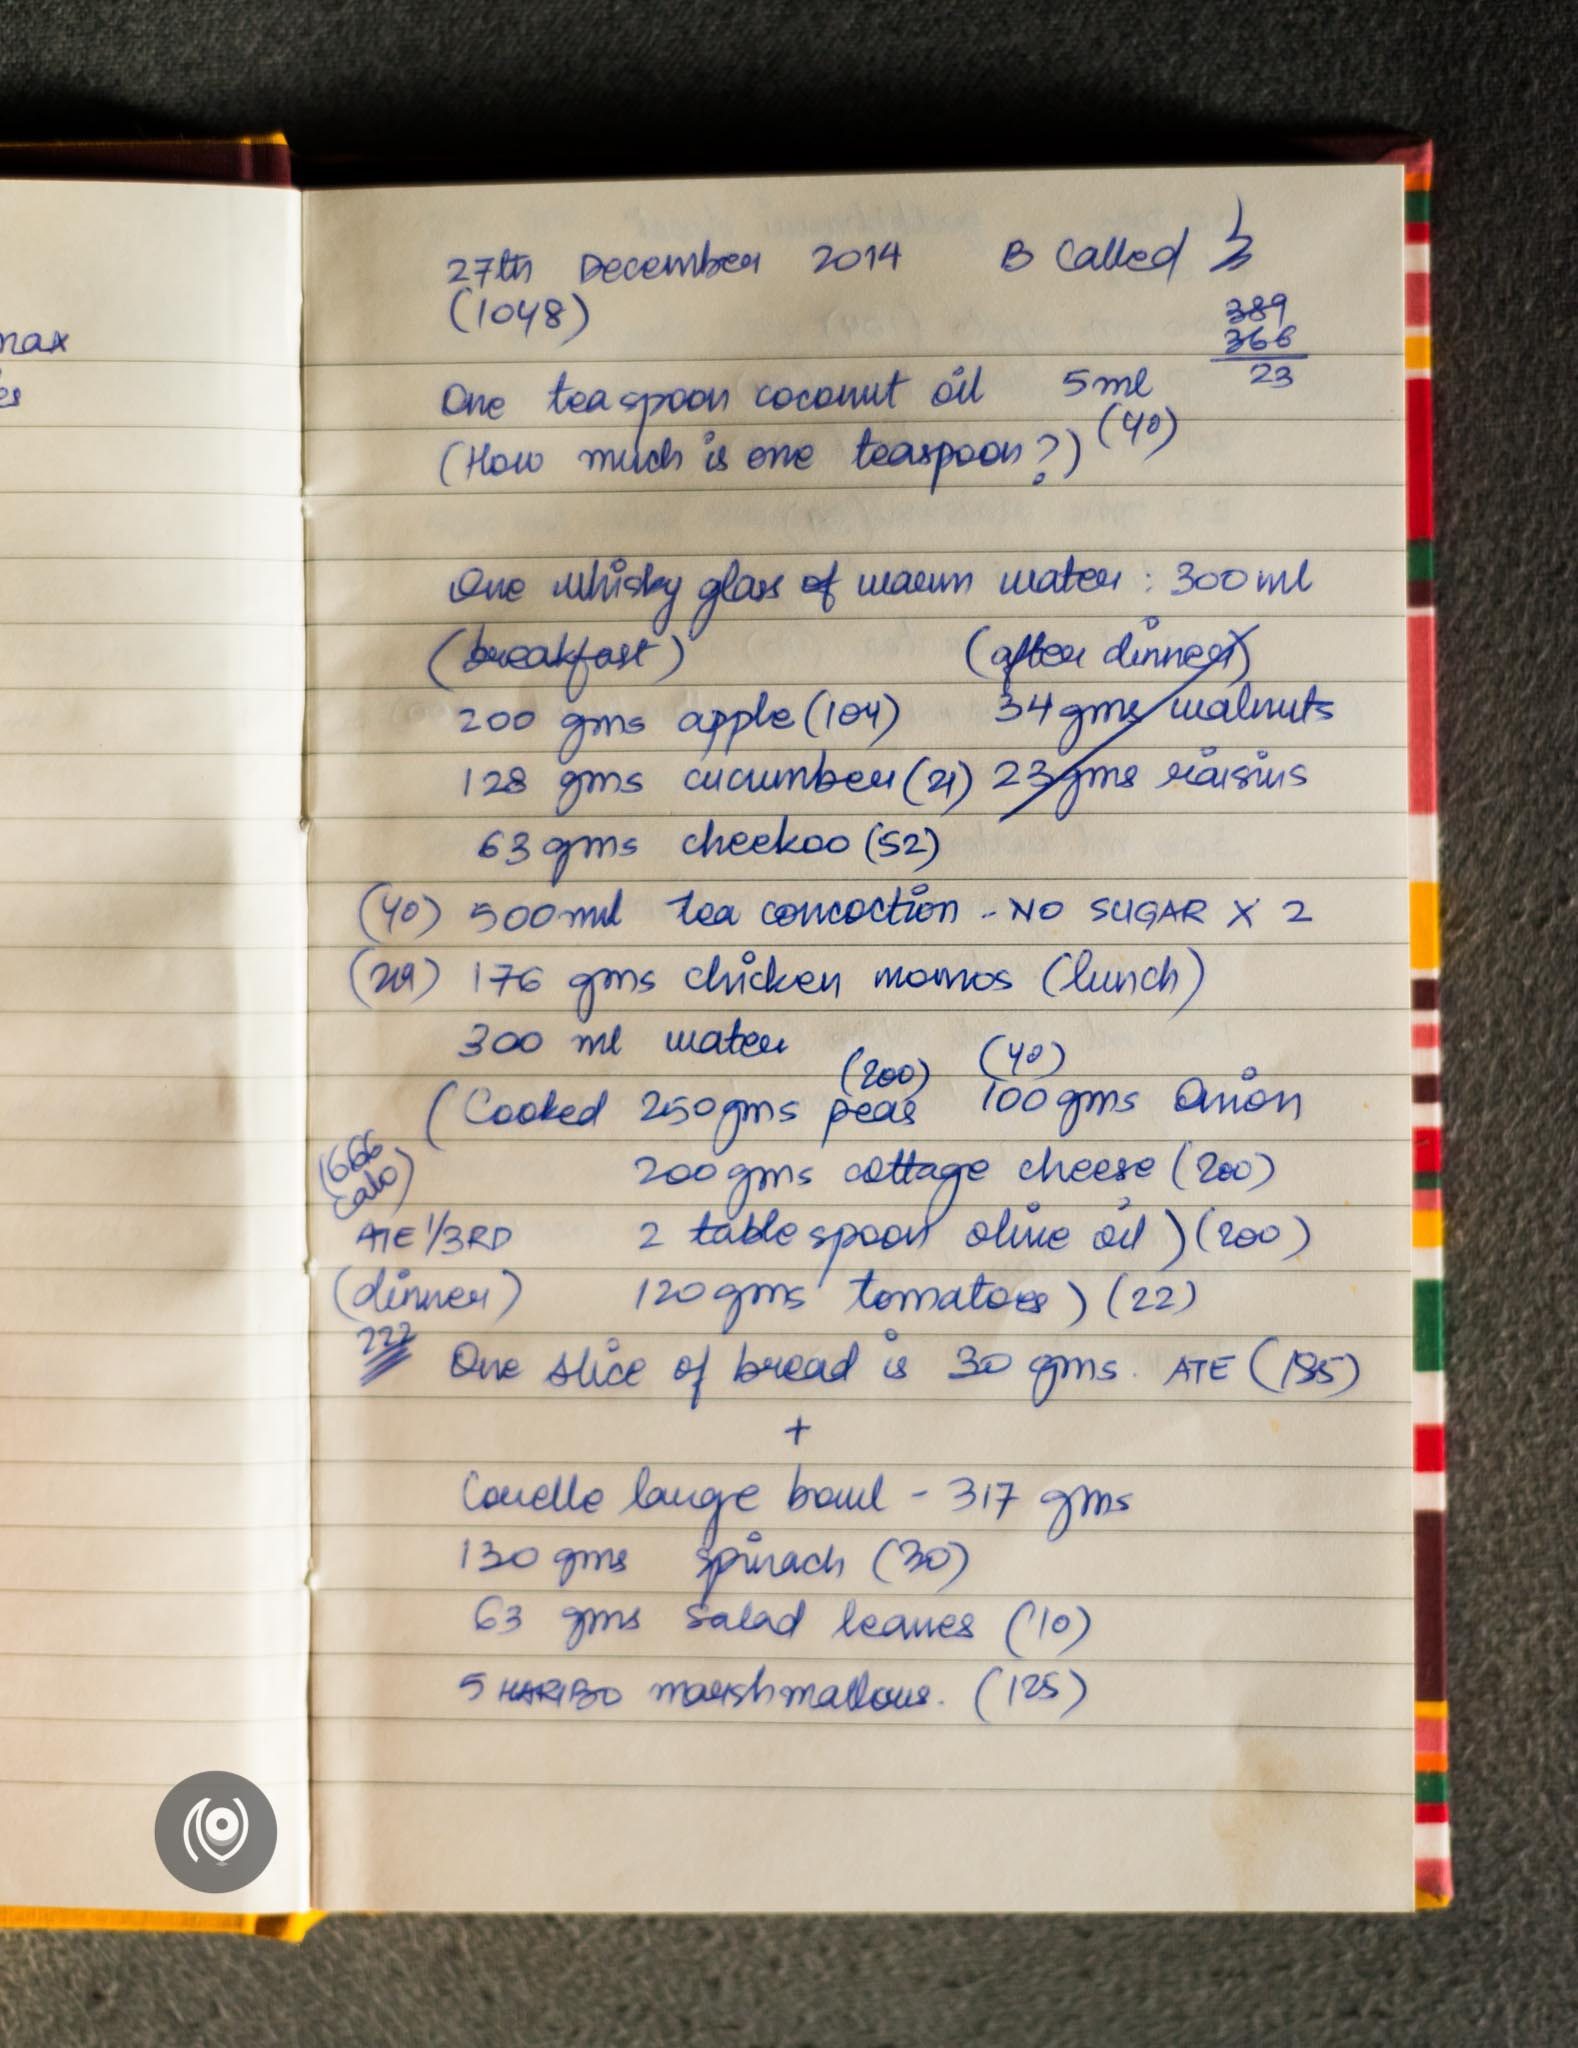 max
es
27th December 2014 B Called
(1048)
389
366
23
One teaspoon coconut oil 5ml
(How much is one teaspoon?) (40)
One whisky glass of warm water : 300 ml
(breakfast) (after dinner)
200 gms apple (104) 34 gms walnuts
128 gms cucumber (21) 23 gms raisins
63 gms cheekoo (52)
(40) 500 ml tea concoction - NO SUGAR X 2
176 gms chicken momos (lunch)
300 ml water
(200) (40)
(Cooked 250 gms peas 100 gms Onion
(666 cals) 200 gms cottage cheese (200)
ATE 1/3RD 2 table spoon olive oil) (200)
(dinner) 120 gms tomatoes) (22)
222 One slice of bread is 30 gms. ATE (185)
+
Corelle large bowl - 317 gms
130 gms spinach (30)
63 gms salad leaves (10)
5 HARIBO marshmallows. (125)